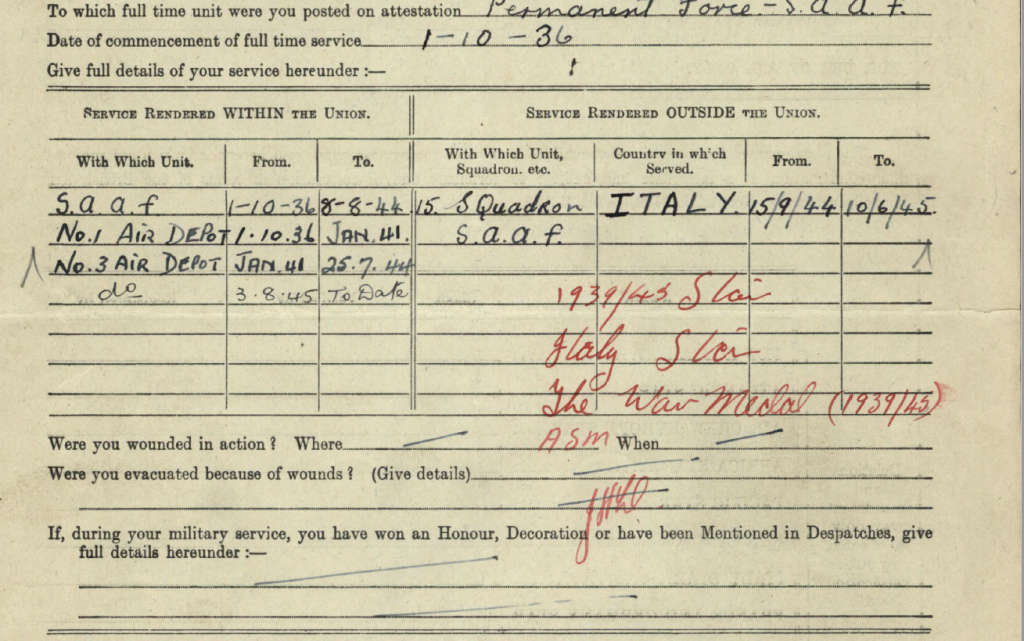 To which full time unit were you posted on attestation Permanent Force - S.a.a.f.
Date of commencement of full time service 1-10-36
Give full details of your service hereunder :—
SERVICE RENDERED WITHIN THE UNION. SERVICE RENDERED OUTSIDE THE UNION.
With Which Unit. From. To. With Which Unit, Squadron. etc. Country in which Served. From. To.
S.a.a.f 1-10-36 8-8-44 15. SQuadron ITALY. 15/9/44 10/6/45.
No.1 AIR DEPOT 1.10.36 JAN.41. S.a.a.f.
No.3 AIR DEPOT JAN.41 25.7.44
do 3.8.45 To Date 1939/45 Star
Italy Star
The War Medal (1939/45)
Were you wounded in action ? Where ASM When
Were you evacuated because of wounds ? (Give details)
If, during your military service, you have won an Honour, Decoration or have been Mentioned in Despatches, give
full details hereunder :—